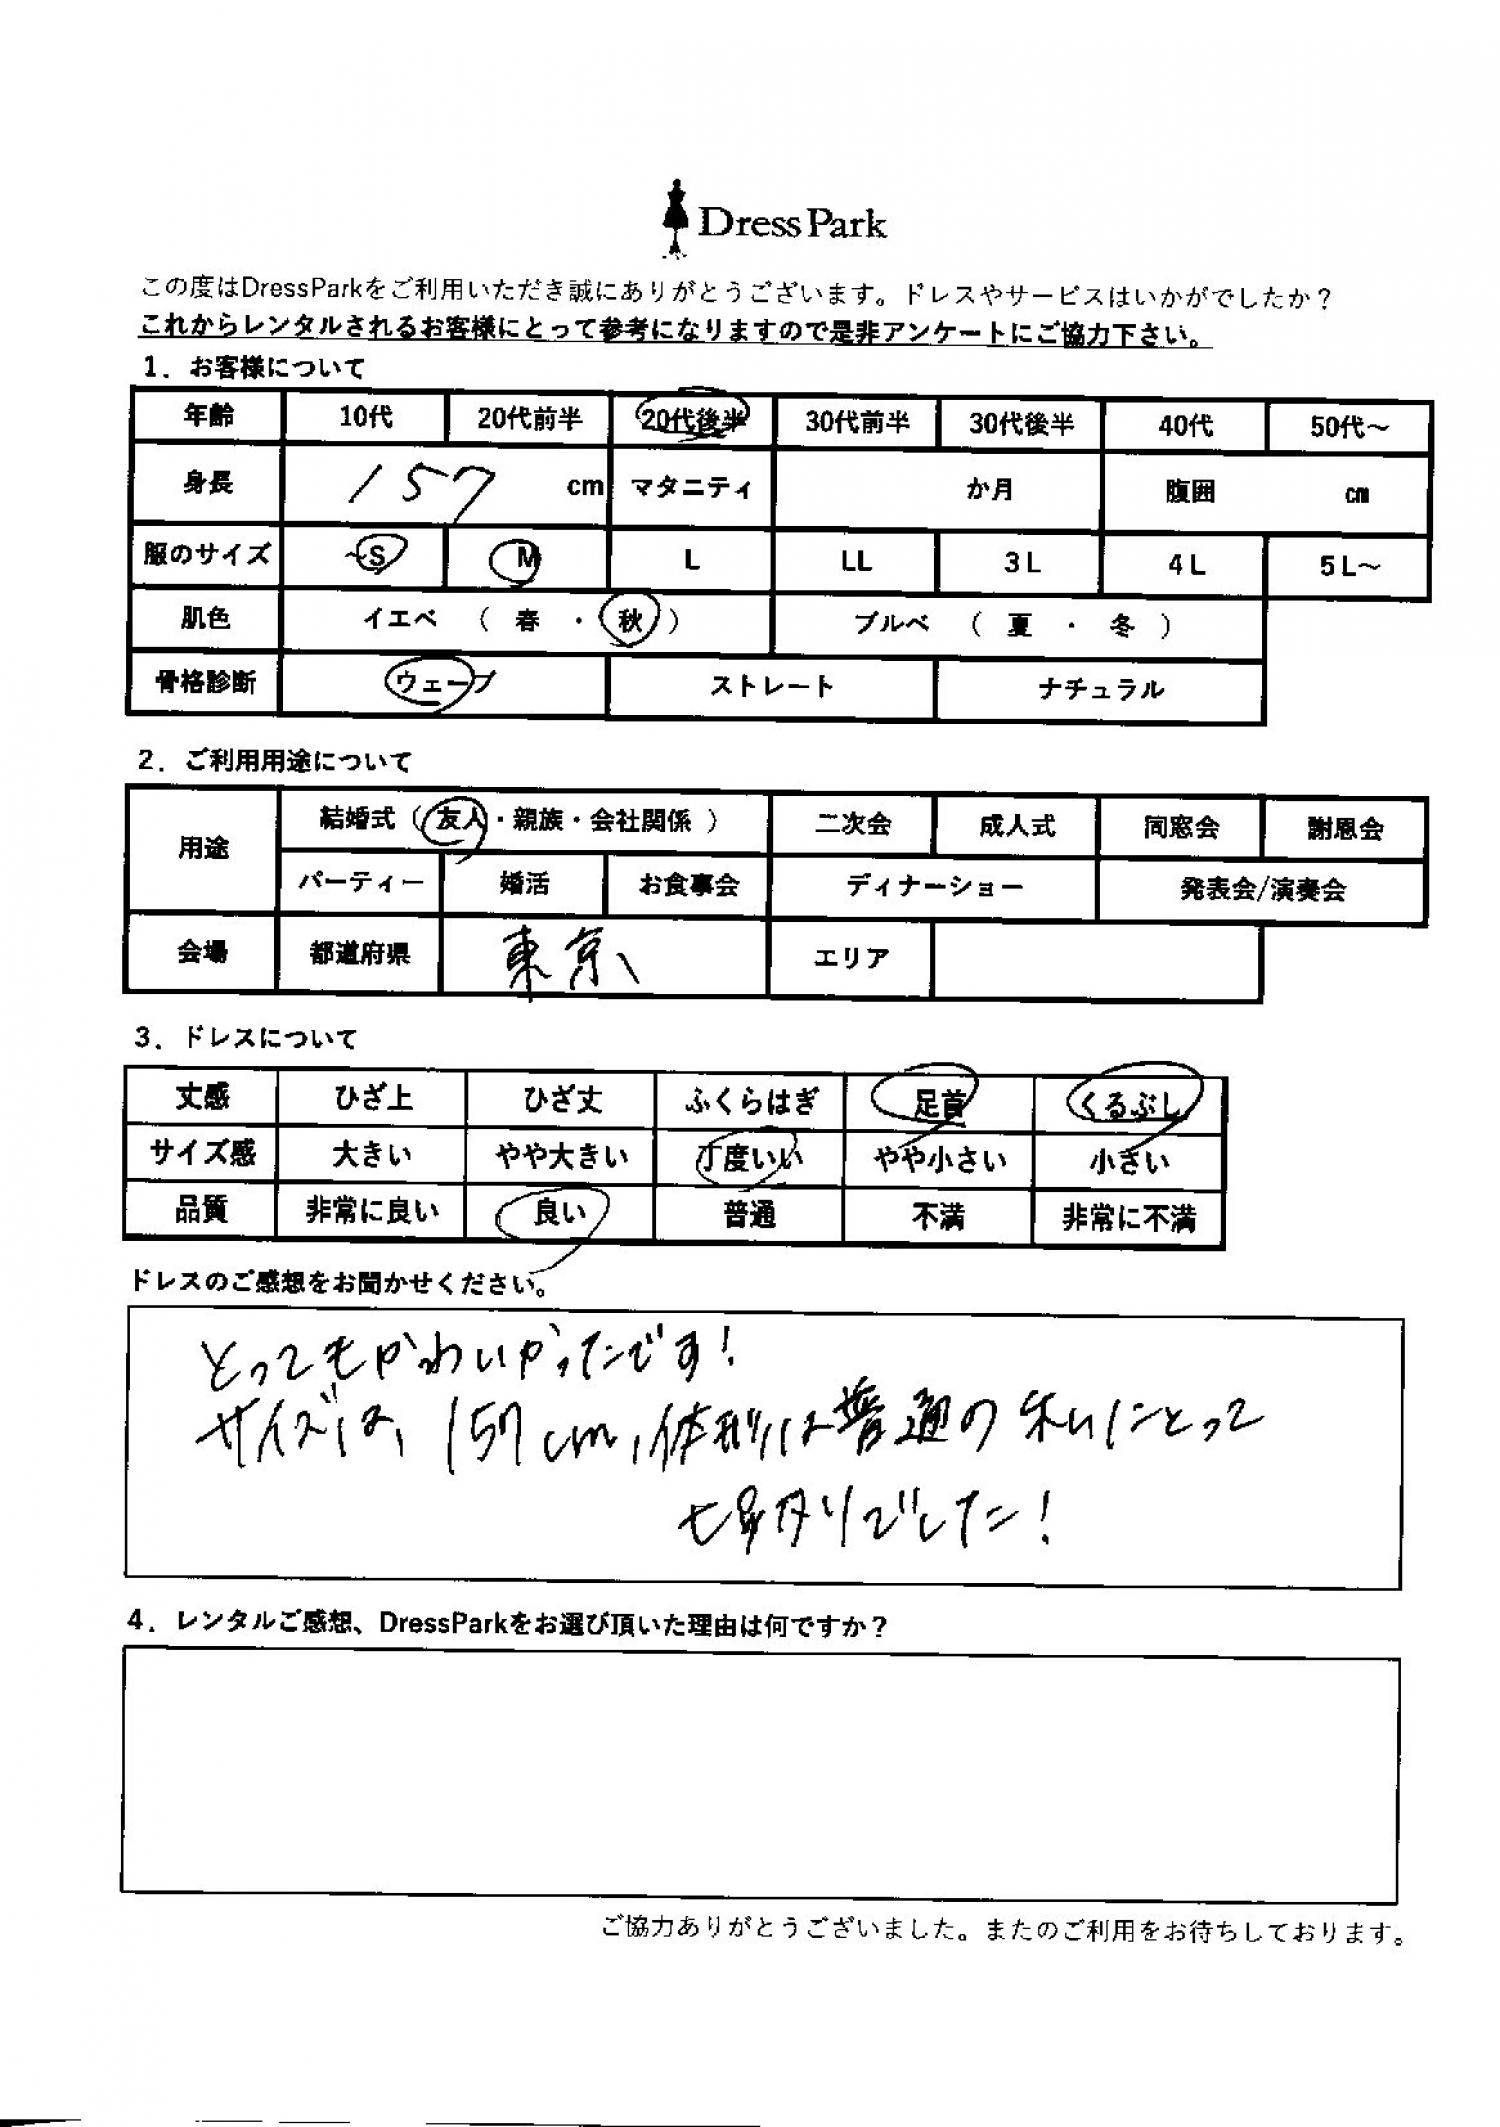 Dress Park
この度はDressParkをご利用いただき誠にありがとうございます。ドレスやサービスはいかがでしたか？
これからレンタルされるお客様にとって参考になりますので是非アンケートにご協力下さい。
1．お客様について
年齢 10代 20代前半 20代後半 30代前半 30代後半 40代 50代～
身長 157 cm マタニティ か月 腹囲 cm
服のサイズ ~S M L LL 3L 4L 5L～
肌色 イエベ （ 春 ・ 秋 ） ブルベ （ 夏 ・ 冬 ）
骨格診断 ウェーブ ストレート ナチュラル
2．ご利用用途について
用途 結婚式（ 友人・親族・会社関係 ） 二次会 成人式 同窓会 謝恩会
パーティー 婚活 お食事会 ディナーショー 発表会/演奏会
会場 都道府県 東京 エリア
3．ドレスについて
丈感 ひざ上 ひざ丈 ふくらはぎ 足首 くるぶし
サイズ感 大きい やや大きい 丁度いい やや小さい 小さい
品質 非常に良い 良い 普通 不満 非常に不満
ドレスのご感想をお聞かせください。
とってもかわいかったです！
サイズは、157cm、体形は普通の私にとって
でした！
4．レンタルご感想、DressParkをお選び頂いた理由は何ですか？
ご協力ありがとうございました。またのご利用をお待ちしております。